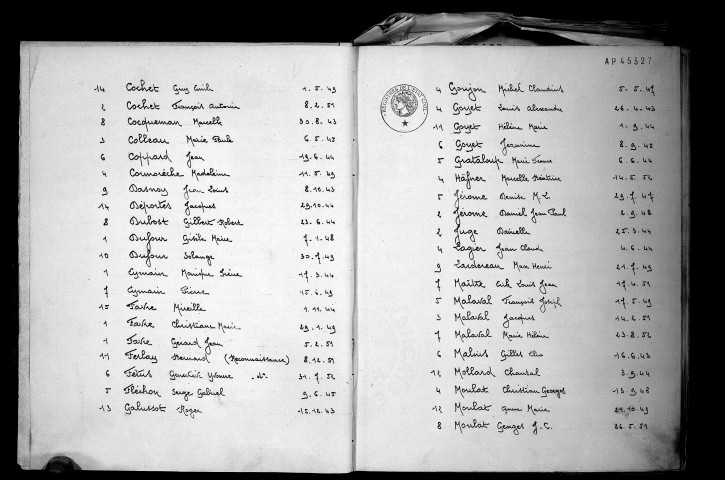 14 Cochet Guy Emile 1.5.49
2 Cochet François Antonin 8.2.51
8 Cocqueman Marcelle 30.8.43
3 Colleau Marie Paule 6.5.45
6 Coppard Jean 19.6.44
4 Cormorèche Madeleine 11.5.49
9 Dasnoy Jean Louis 8.10.43
14 Déportes Jacques 29.10.44
8 Dubost Gilbert Robert 23.6.44
1 Dufour Gisèle Marie 7.1.48
10 Dufour Solange 30.7.49
1 Eymain Monique 17.3.44
7 Eymain Pierre 15.6.49
15 Favre Mireille 1.11.44
1 Favre Christiane Marie 29.1.49
1 Favre Gérard Jean 5.2.51
11 Ferlay Bernard (Reconnaissance) 8.12.51
6 Fétus Geneviève Yvonne 31.7.52
5 Fléchon Serge Gabriel 9.6.45
13 Galussot Roger 15.12.43
AP45327
4 Goujon Michel Claudius 5.5.47
4 Goyet Louis Alexandre 26.4.43
11 Goyet Hélène Marie 1.9.44
6 Goyet Jeannine 8.9.45
5 Grataloup Marie 6.6.44
4 Häfner Marcelle Béatrice 14.5.52
5 Jérome Denise M.L. 29.7.47
2 Jérome Daniel Jean Paul 2.9.48
2 Juge Danielle 25.3.44
4 Lagier Jean Claude 4.6.44
9 Lardereau Marc Henri 21.7.49
7 Maitre Louis Jean 17.4.51
5 Malaval François Joseph 17.5.49
3 Malaval Jacques 14.2.51
7 Malaval Marie Hélène 23.8.52
6 Gilles 16.6.43
12 Mollard Chantal 3.9.44
4 Moulat Christian Georges 13.9.48
12 Moulat Anne Marie 21.10.49
8 Moulat Georges J.C. 26.5.51